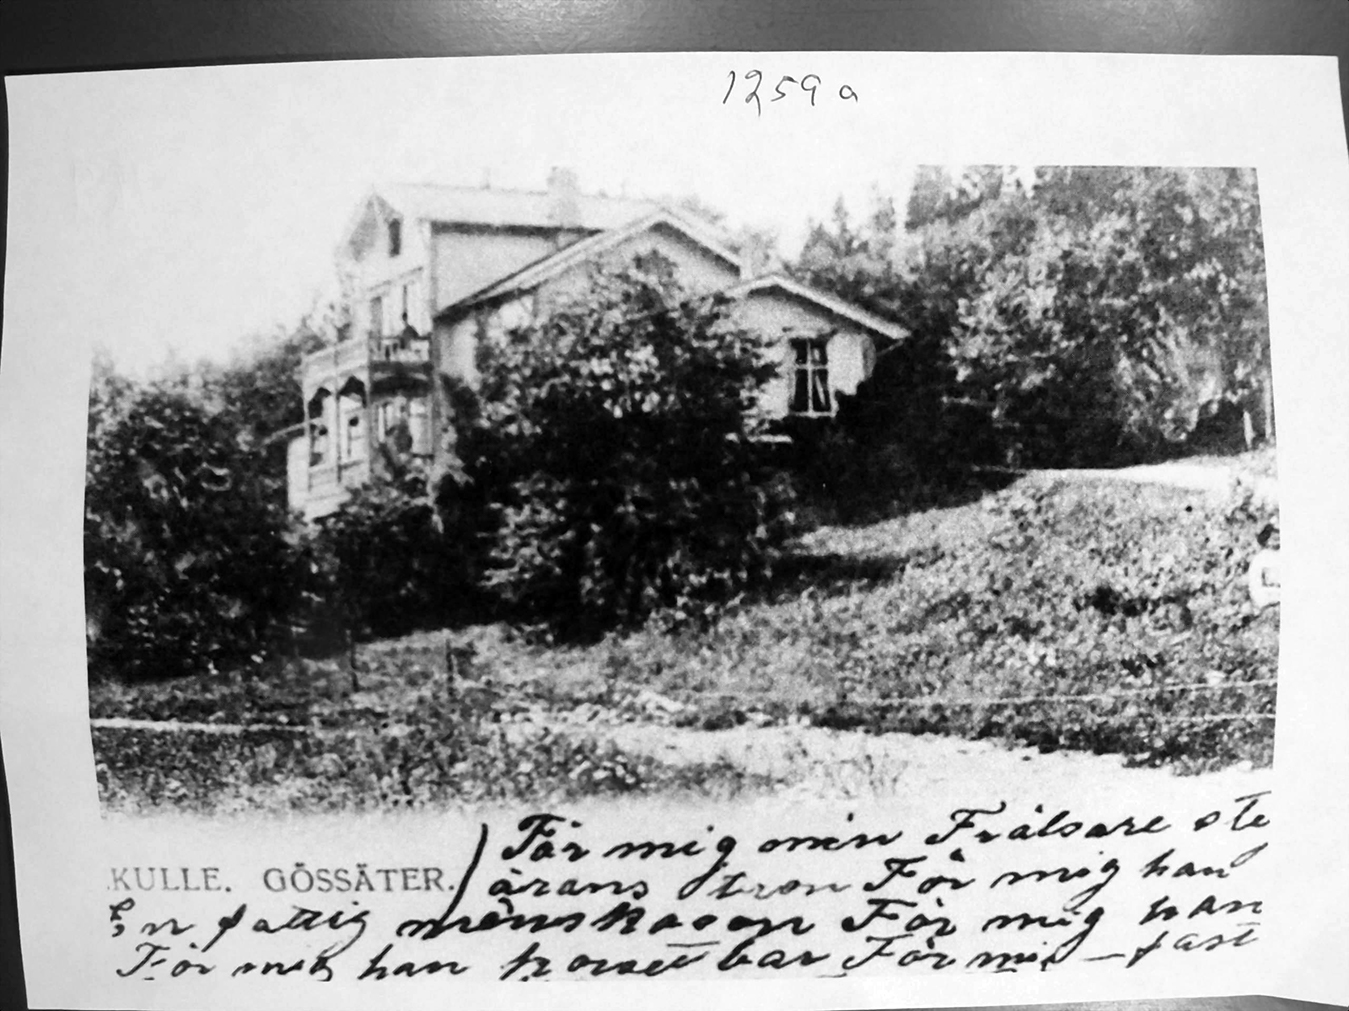 1259 a
För mig min Frälsare ste
KULLE. GÖSSÄTER.
ärans tron För mig han
En fattig människason För mig han
För mig han korset bar För mig – fast